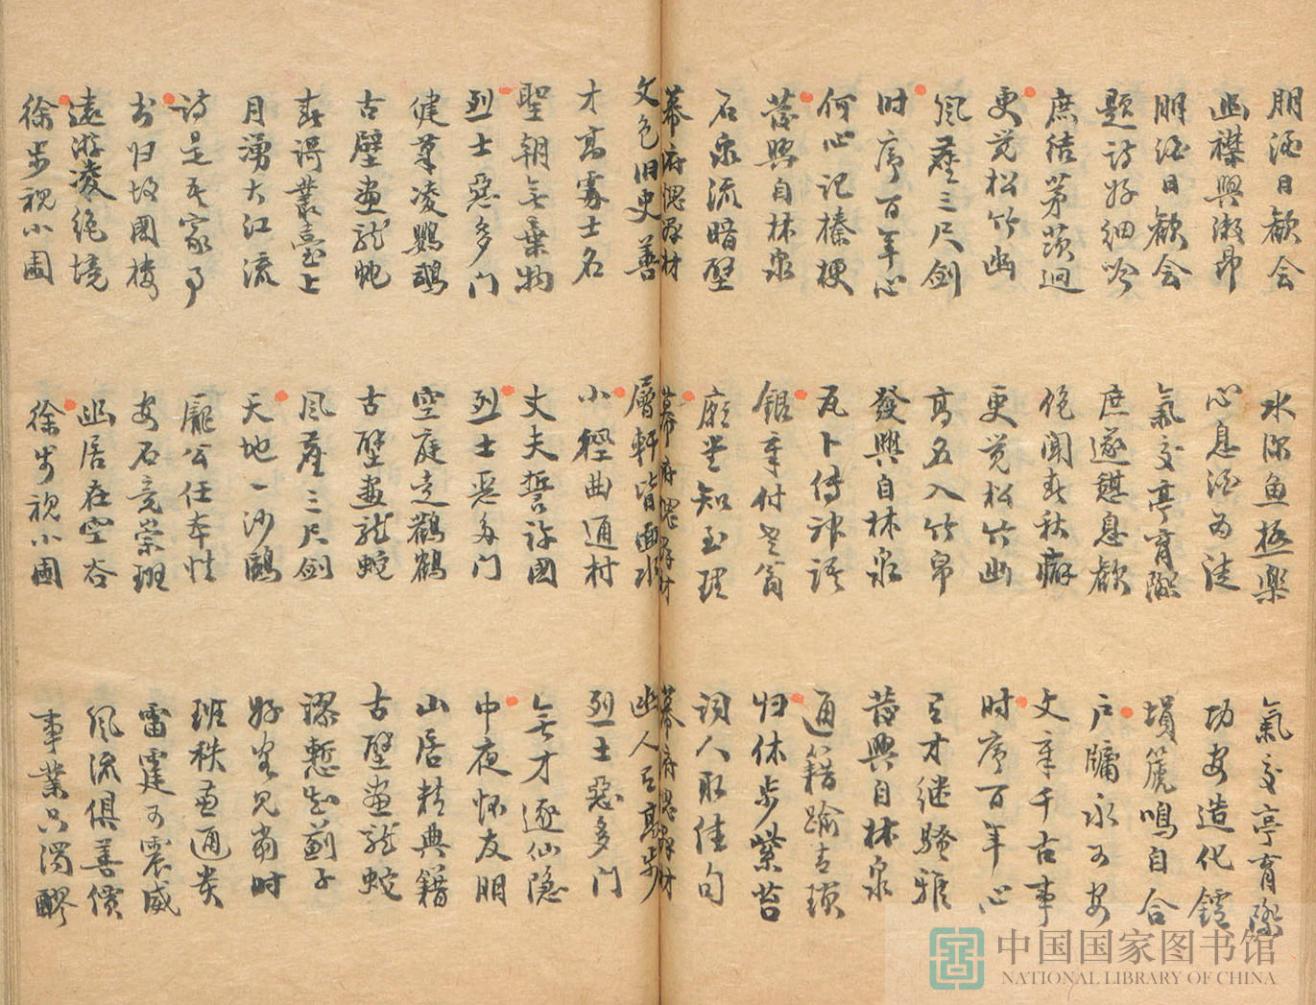 朋酒日歡会
幽襟興激昂
朋酒日歡会
題詩好細吟
庶結茅茨迥
更覚松竹幽
風塵三尺劍
时序百年心
何心记榛梗
發興自林泉
石泉流暗壁
幕府愧群材
水深魚極樂
心息酒为徒
氣交亭育際
庶遂憩息歡
飽聞春秋癖
更覚松竹幽
高名入竹帛
發興自林泉
瓦卜傳神語
銀章付老翁
廟堂知至理
幕府愧群材
氣交亭育際
功安造化鑪
塤篪鳴自合
户牖永可安
文章千古事
时序百年心
才继騷雅
發興自林泉
通籍踰青瑣
归休步紫苔
詞人取佳句
幕府愧群材
文包旧史善
才高士名
聖朝無棄物
烈士惡多門
健筆凌鸚鵡
古壁畫龍蛇
春叢臺上
月湧大江流
詩是吾家事
书归故國樓
遠游凌絕境
徐步視小圃
層軒皆面水
小徑曲通村
丈夫誓許國
烈士惡多門
空庭走鸛鶴
古壁畫龍蛇
風塵三尺劍
天地一沙鷗
龐公任本性
安石竟崇班
幽居在空谷
徐步視小圃
幽人高步
烈士惡多門
無才逐仙隱
中夜怀友朋
山居精典籍
古壁畫龍蛇
謬慙知薊子
好客見當时
班秩兼通貴
雷霆可震威
風流俱善價
事業只濁醪
中国国家图书馆
NATIONAL LIBRARY OF CHINA